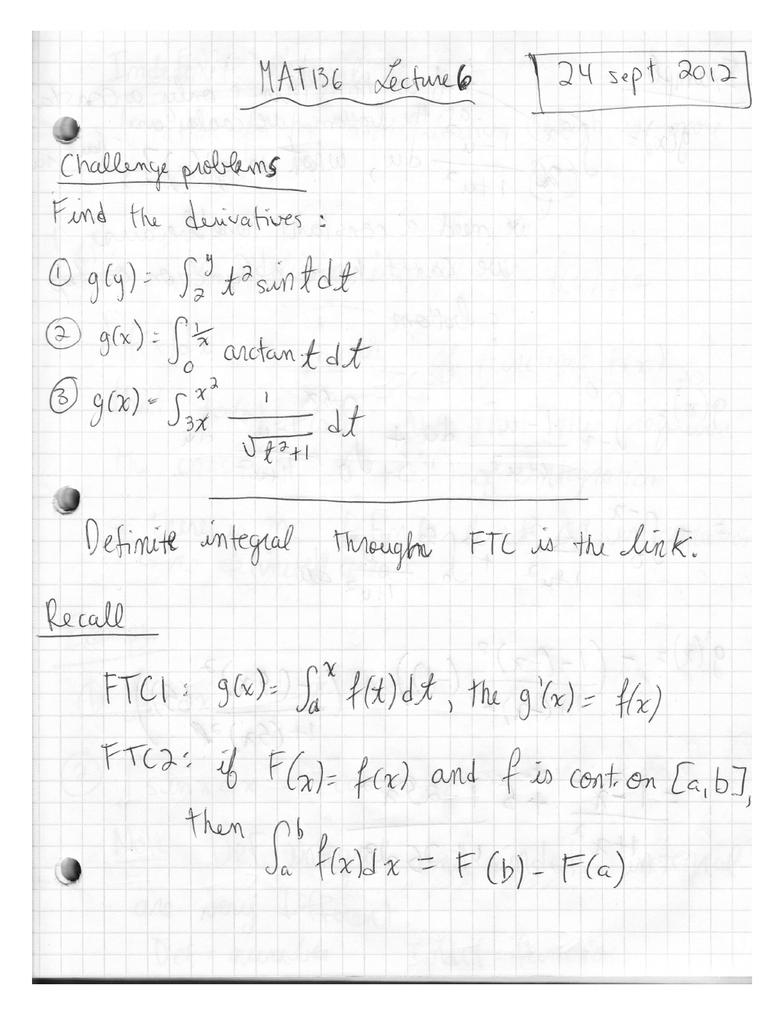 MAT136 Lecture 6
24 sept 2012
Challenge problems
Find the derivatives :
① g(y) = ∫₂^y t² sin t dt
② g(x) = ∫₀^(1/x) arctan t dt
③ g(x) = ∫_(3x)^(x²) 1/√(t²+1) dt
Definite integral through FTC is the link.
Recall
FTC1 : g(x) = ∫ₐ^x f(t) dt, the g'(x) = f(x)
FTC2 : if F(x) = f(x) and f is cont. on [a,b],
then ∫ₐ^b f(x) dx = F(b) - F(a)